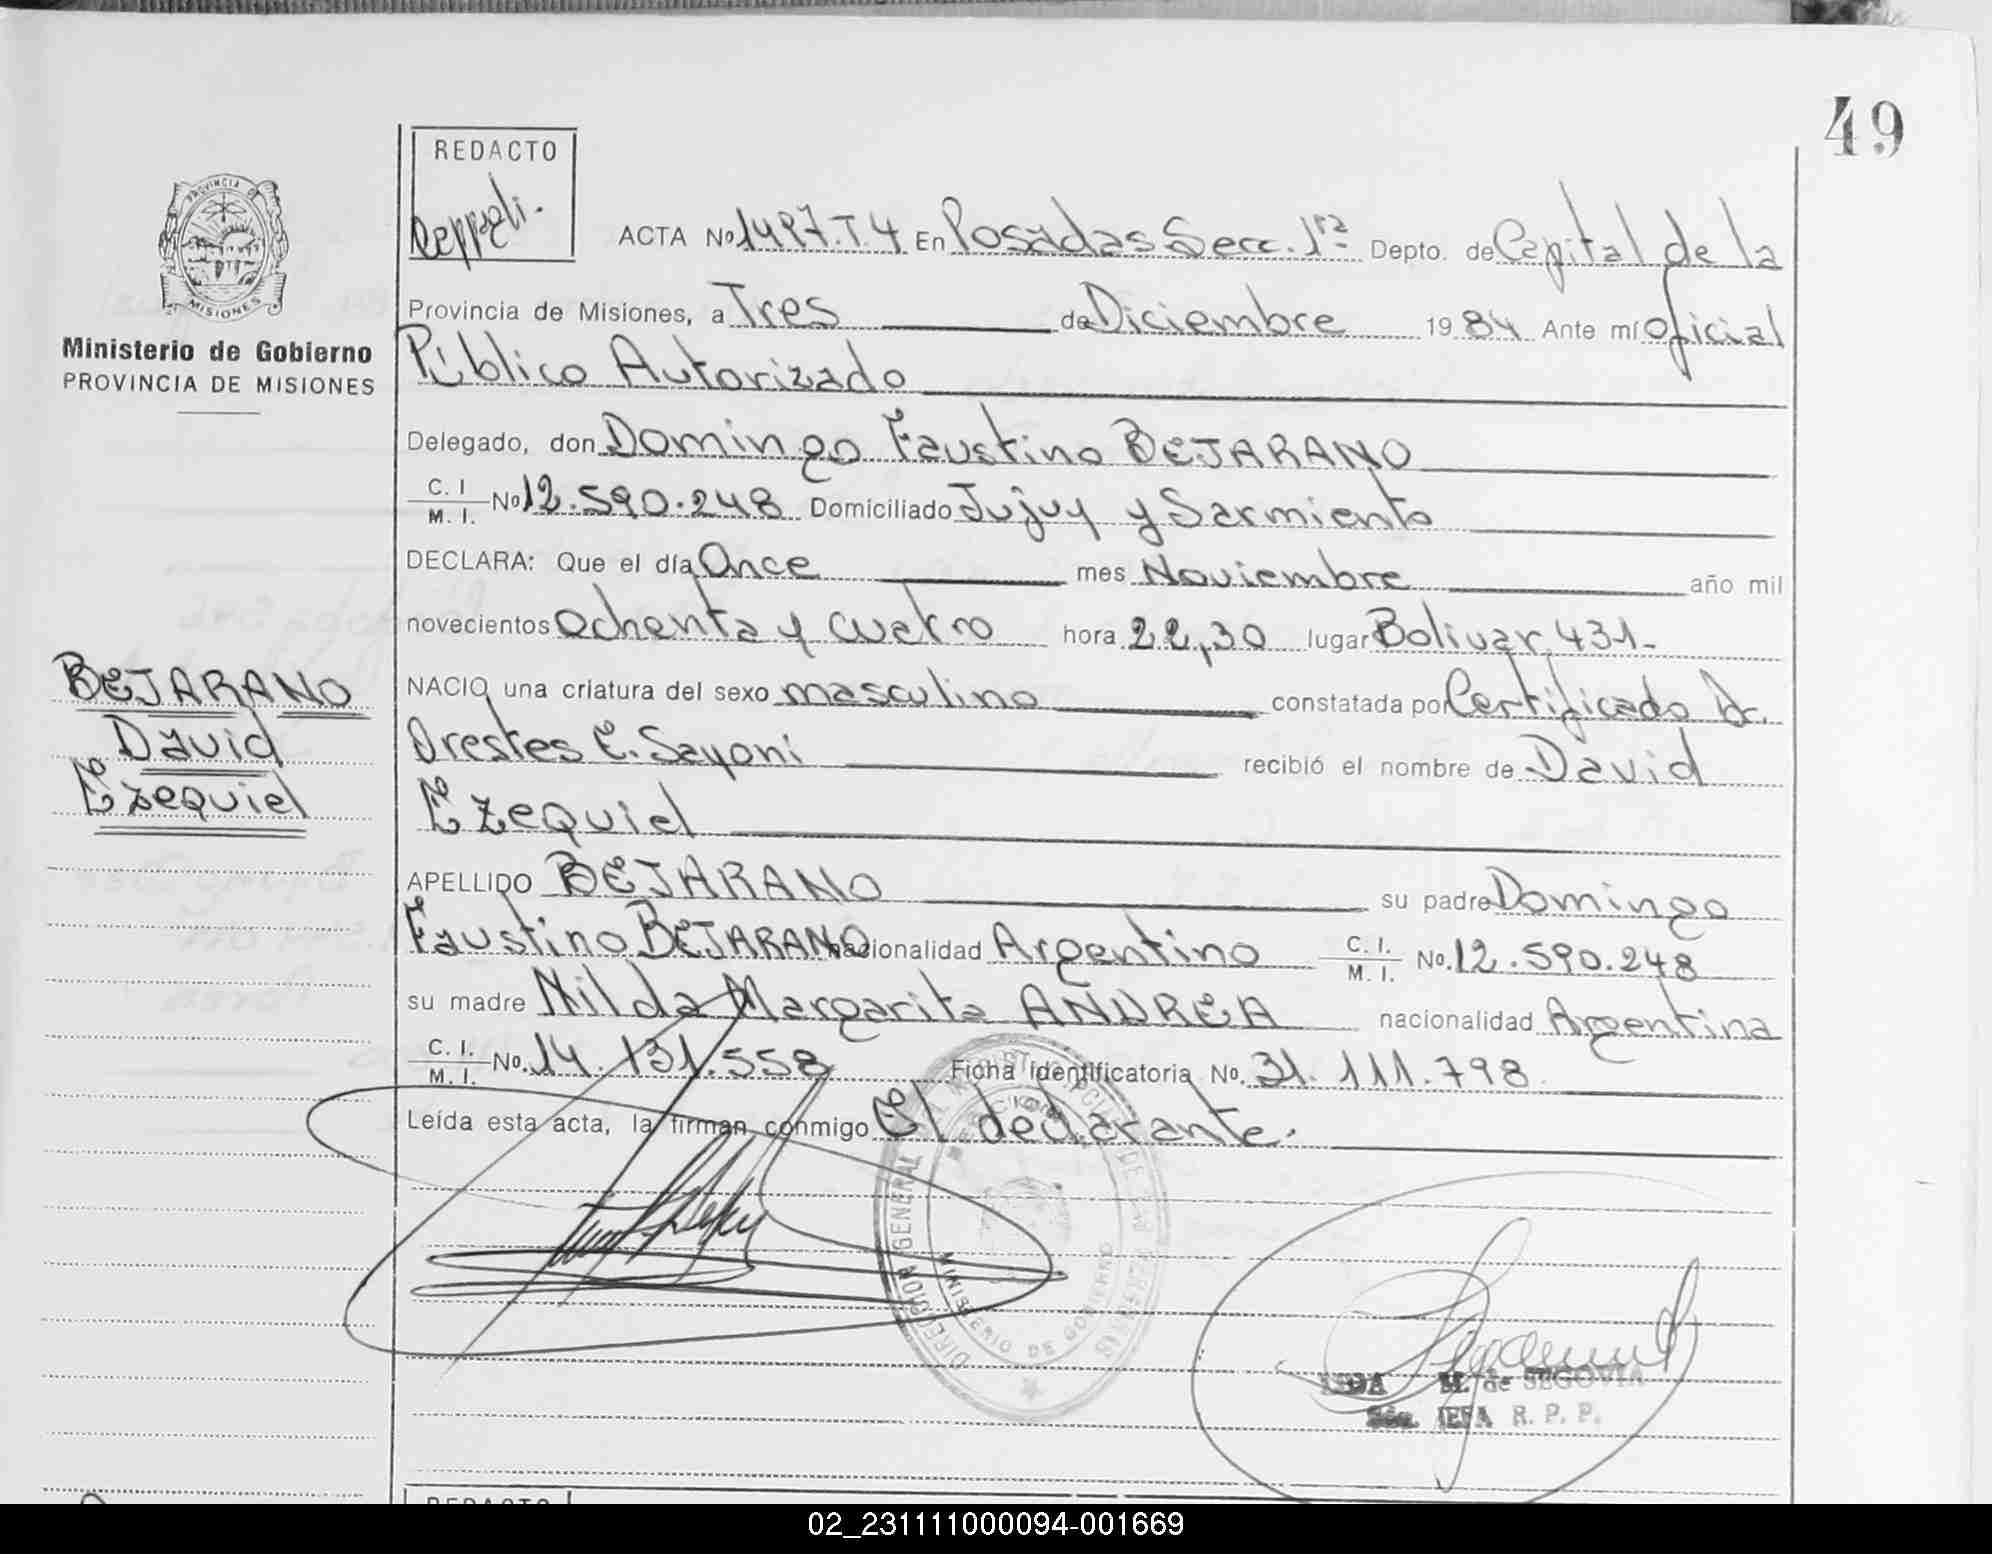 49
REDACTO
ACTA Nº 1497.T.4 En Posadas Secc. 1ra Depto. de Capital de la
Provincia de Misiones, a Tres de Diciembre 1984 Ante mí Oficial
Público Autorizado
Delegado, don Domingo Faustino BEJARANO
C. I. M. I. Nº 12.590.248 Domiciliado Jujuy y Sarmiento
DECLARA: Que el día Once mes Noviembre año mil
novecientos Ochenta y cuatro hora 22,30 lugar Bolivar 431-
NACIO una criatura del sexo masculino constatada por Certificado Dr.
Orestes E. Sayoni recibió el nombre de David
Ezequiel
APELLIDO BEJARANO su padre Domingo
Faustino BEJARANO nacionalidad Argentino C. I. M. I. No. 12.590.248
su madre Nilda Margarita ANDREA nacionalidad Argentina
C. I. M. I. No. 14.131.558 Ficha Identificatoria No. 31.111.798
Leída esta acta, la firman conmigo El declarante.
PROVINCIA DE
MISIONES
Ministerio de Gobierno
PROVINCIA DE MISIONES
BEJARANO
David
Ezequiel
DIRECCION GENERAL
MINISTERIO DE GOBIERNO
M. de SEGOVIA
JEFA R. P. P.
REDACTO
02_231111000094-001669